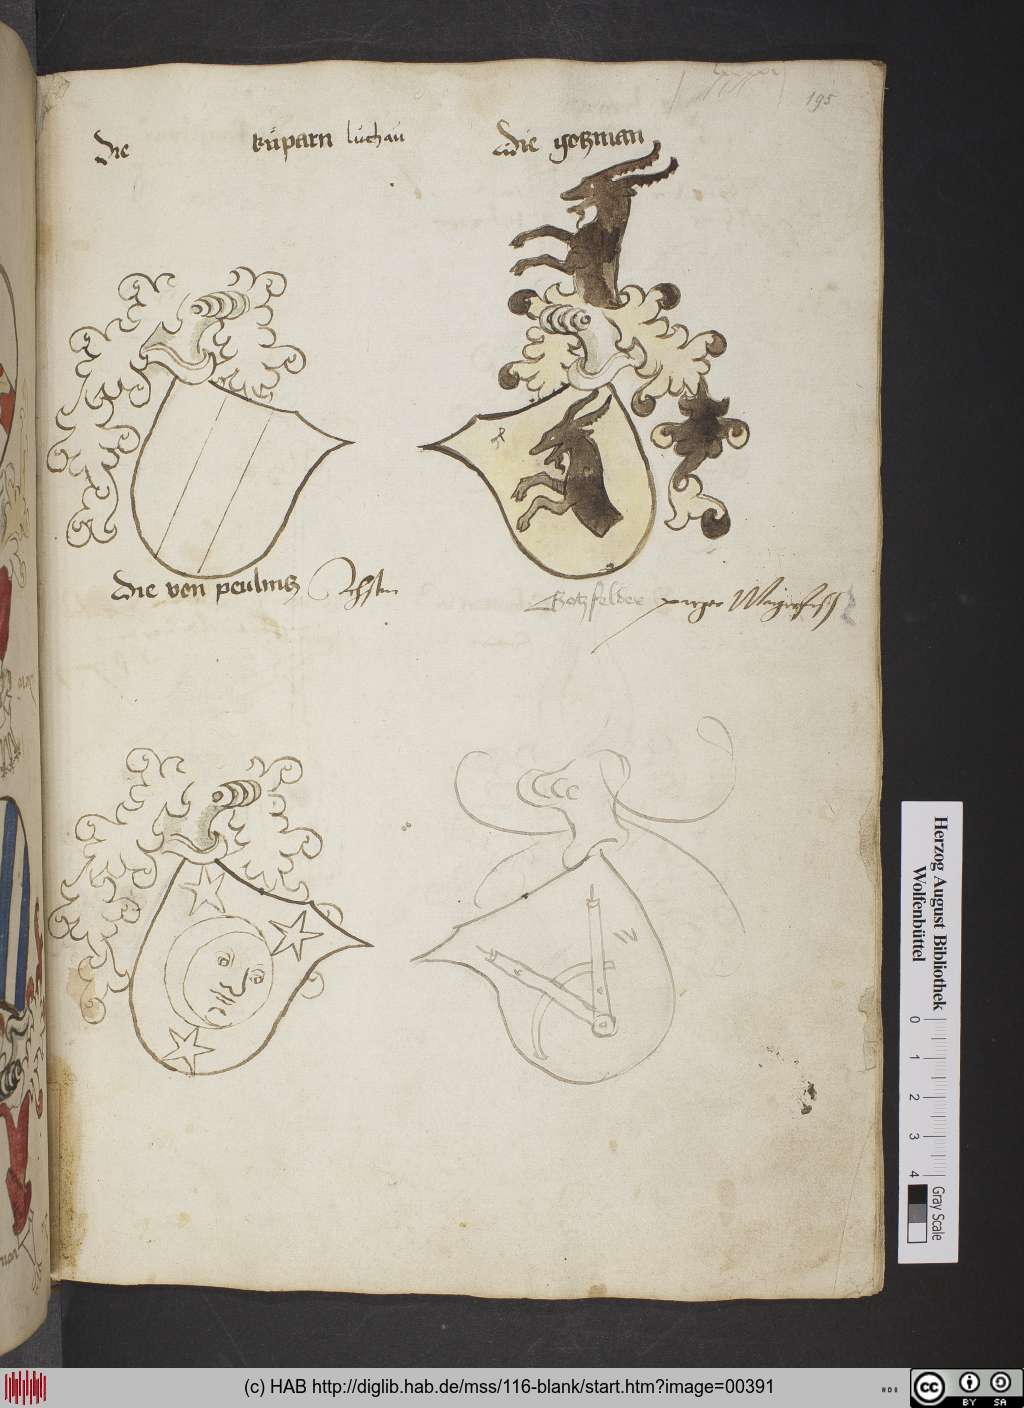 195
Die küparn luchau
Die gotzman
g
Die von peulnitz
Gotzfelder
W
Herzog August Bibliothek
Wolfenbüttel
0 1 2 3 4
Gray Scale
(c) HAB http://diglib.hab.de/mss/116-blank/start.htm?image=00391
cc BY SA